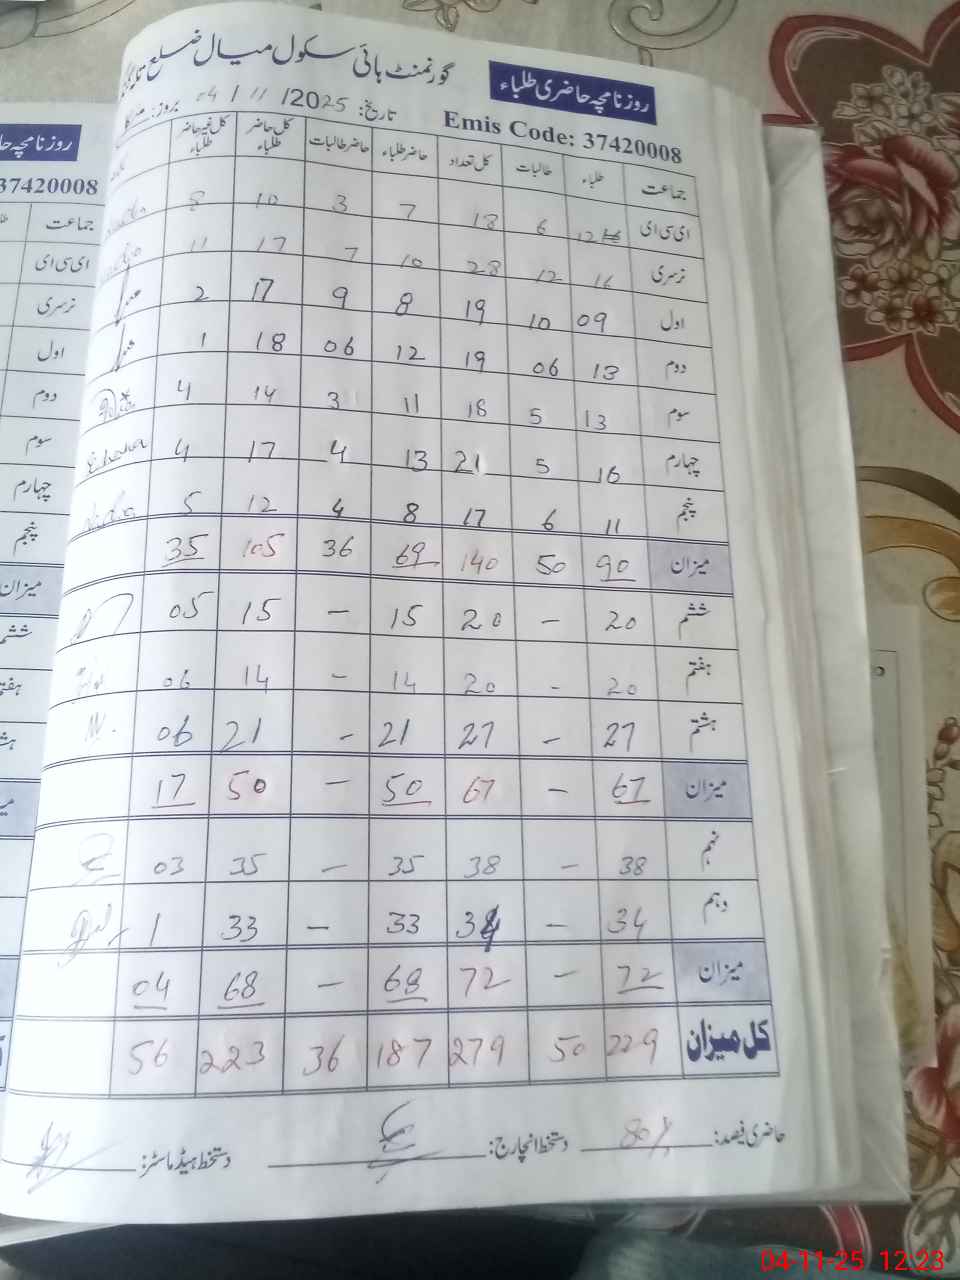 گورنمنٹ ہائی سکول میال ضلع
روزنامچہ حاضری طلباء
Emis Code: 37420008
تاریخ: 04 / 11 / 2025 بروز:
جماعت طلباء طالبات کل تعداد حاضر طلباء حاضر طالبات کل حاضر طلباء کل غیر حاضر طلباء
ای سی ای 12 6 18 7 3 10 8
نرسری 16 12 28 10 7 17 11
اول 09 10 19 8 9 17 2
دوم 13 06 19 12 06 18 1
سوم 13 5 18 11 3 14 4
چہارم 16 5 21 13 4 17 4
پنجم 11 6 17 8 4 12 5
میزان 90 50 140 69 36 105 35
ششم 20 – 20 15 – 15 05
ہفتم 20 – 20 14 – 14 06
ہشتم 27 – 27 21 – 21 06
میزان 67 – 67 50 – 50 17
نہم 38 – 38 35 – 35 03
دہم 34 – 34 33 – 33 1
میزان 72 – 72 68 – 68 04
کل میزان 229 50 279 187 36 223 56
حاضری فیصد: 80% دستخط انچارج: دستخط ہیڈ ماسٹر:
روزنامچہ
37420008
جماعت
ای سی ای
نرسری
اول
دوم
سوم
چہارم
پنجم
میزان
ششم
04-11-25 12:23